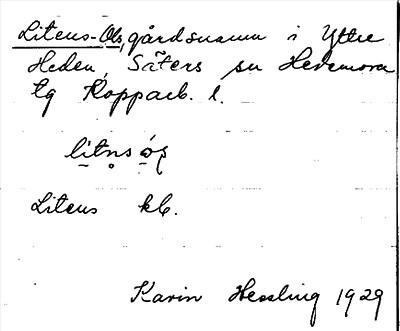 Litens-Ols, gårdsnamn i Yttre
Heden, Säters sn Hedemora
tg Kopparb. l.
litns ós
Litens kb.
Karin Hessling 1929